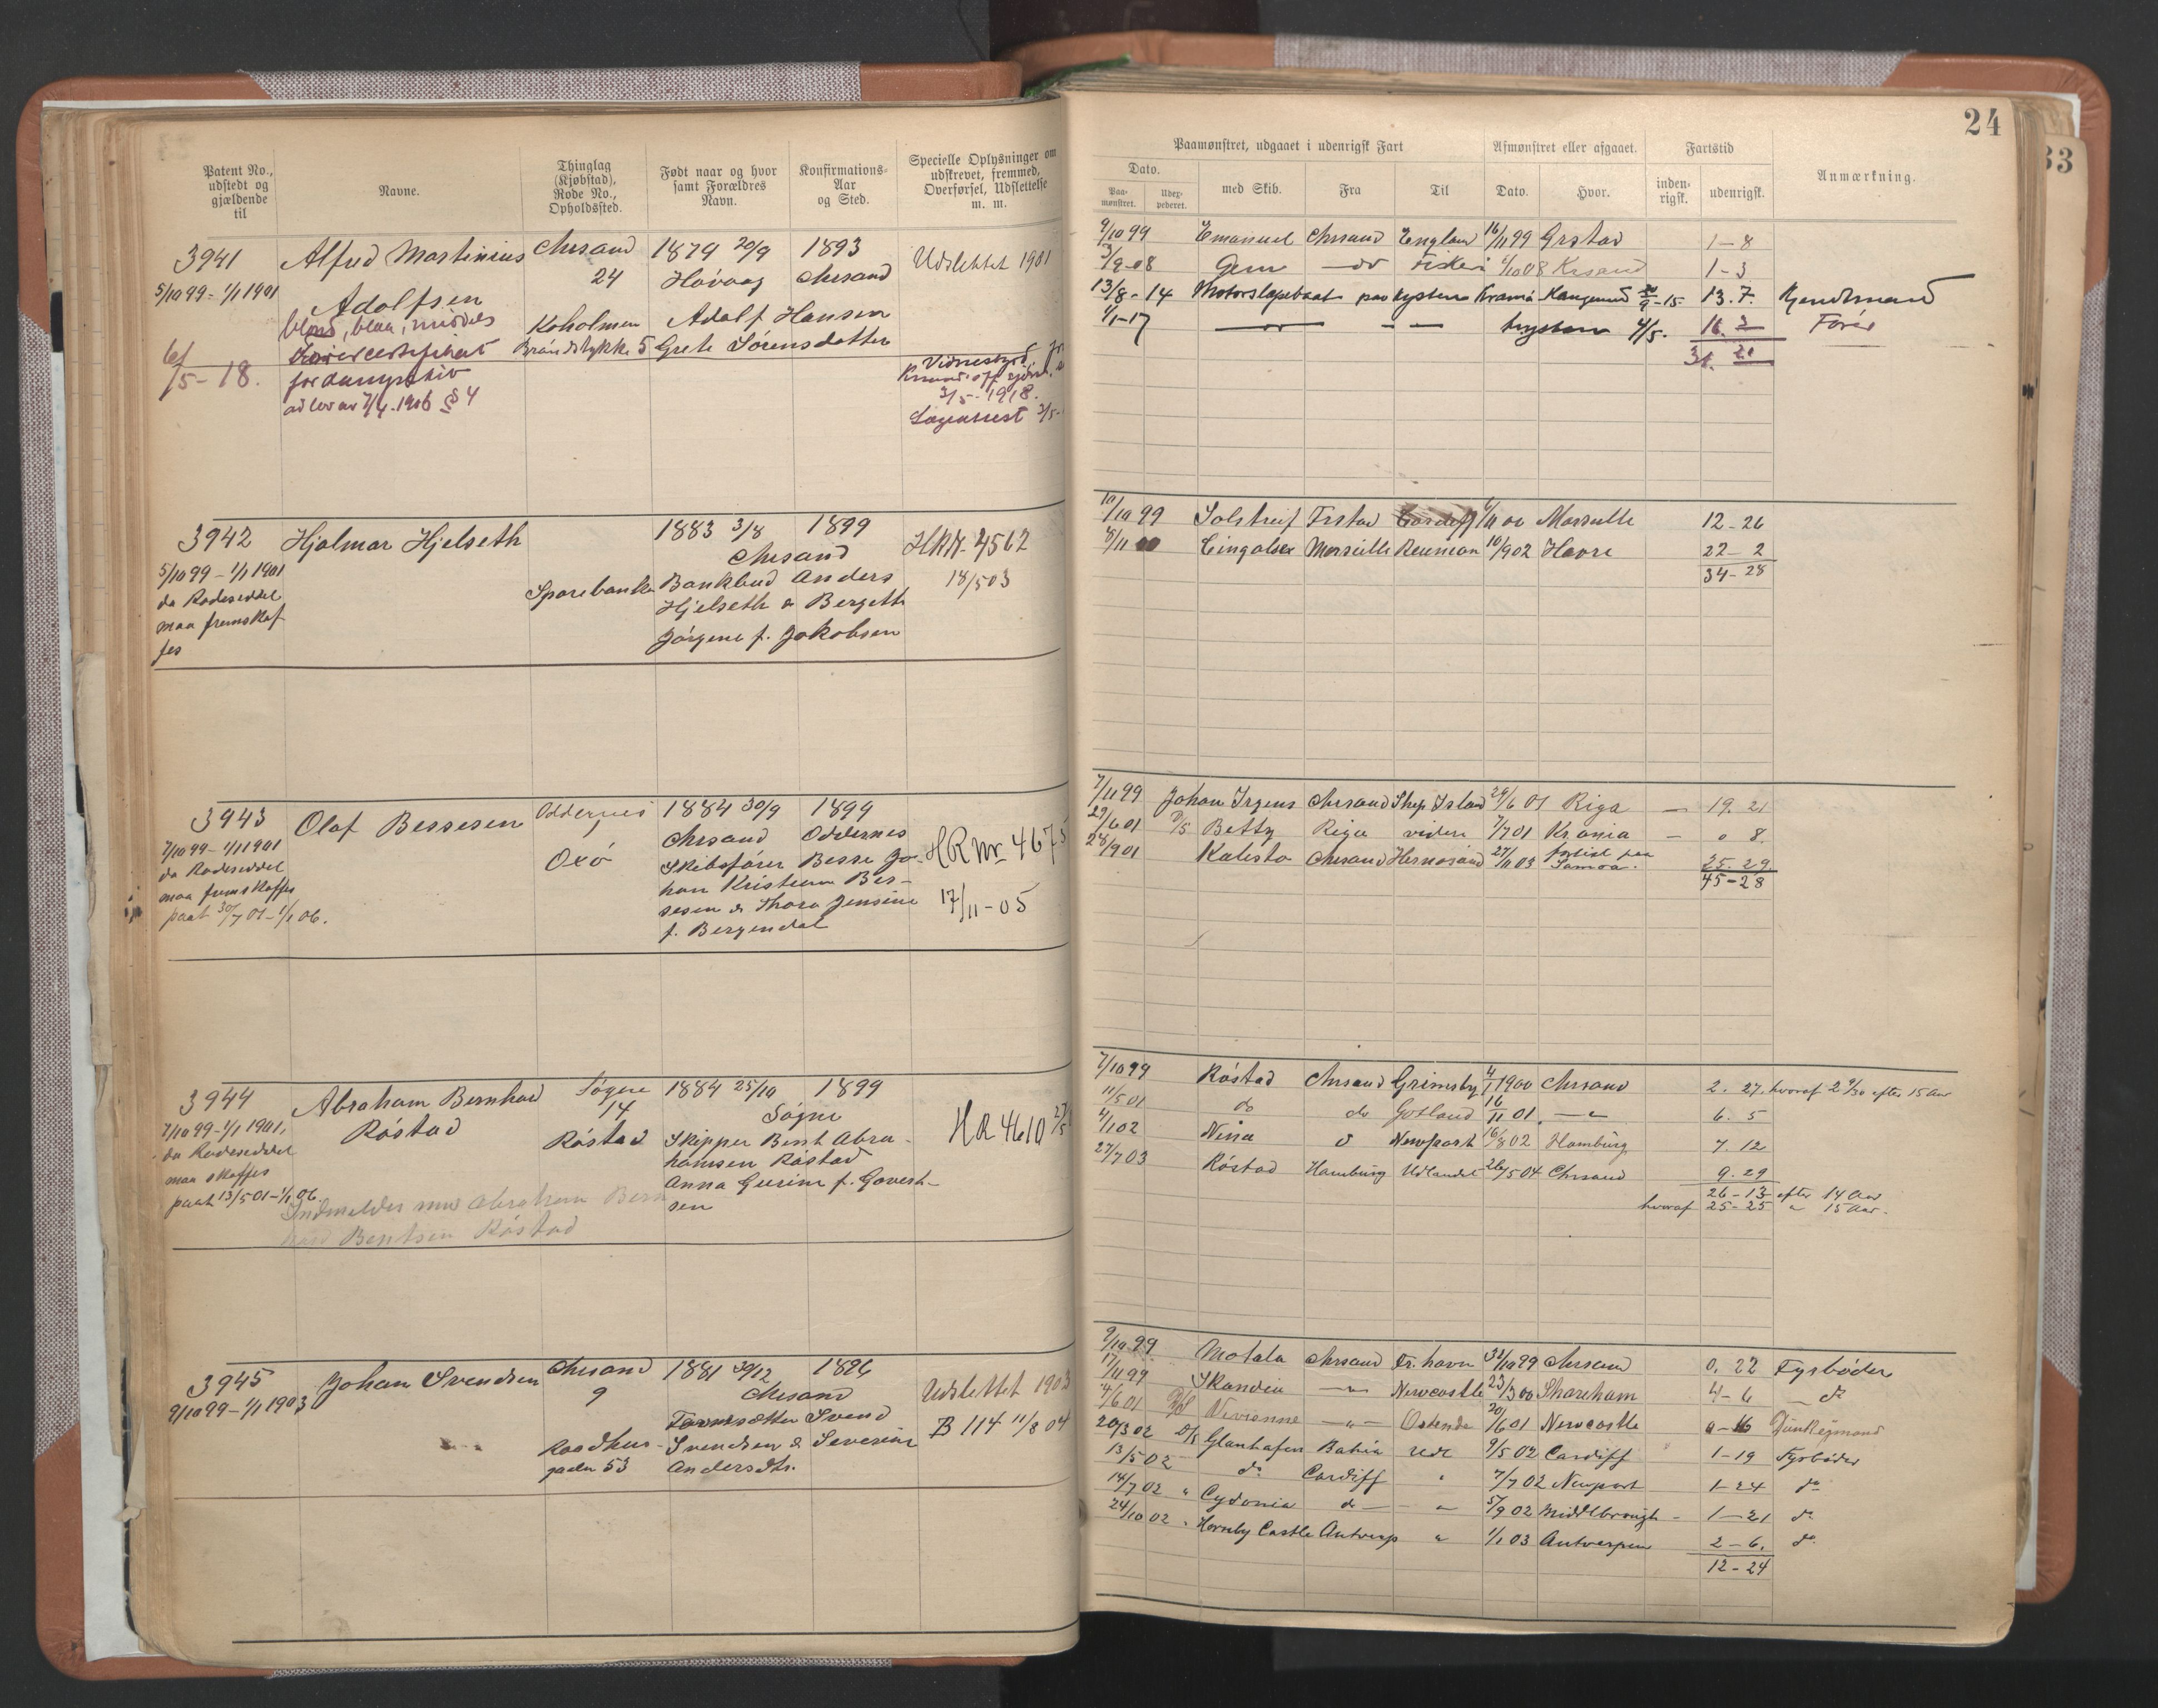 24
33
Patent No., udstedt og gjældende til
Navne.
Thinglag (Kjøbstad), Rode No., Opholdssted.
Født naar og hvor samt Forældres Navn.
Konfirmations-Aar og Sted.
Specielle Oplysninger om udskrevet, fremmed, Overførsel, Udslettelse m. m.
Paamønstret, udgaaet i udenrigsk Fart
Afmønstret eller afgaaet.
Fartstid
Anmærkning.
Dato.
Paa-mønstret.
Udex-pederet.
med Skib.
Fra
Til
Dato.
Hvor.
inden-rigsk.
udenrigsk.
3941
5/10 99 - 1/1 1901
6/5 - 18.
Alfred Martinius
Adolfsen
blond, blaa, middels
Førercertifikat
for dampskib
ad lov av 7/4 1906 § 4
Chrsand
24
Koholmen
Brandstykke 5
1879 20/9
Høvaag
Adolf Hansen
Grete Sørensdatter
1893
Chrsand
Udslettet 1901
Vidnesbyrd
3/5 - 1918.
Lægeattest 3/5
9/10 99 Emanuel Chrsand England 16/11 99 Grstad 1-8
3/9-08 Gem - do Fiskeri 1/10 08 Krsand 1-3
13/8-14 Motorslæpebaat paa kysten 13. 7. Kjendtmand
1/1-17 kysten 4/5. 16. 3 Fører
31. 21
3942
5/10 99 - 1/1 1901
da Rodeseddel
maa fremskaf
fes
Hjalmar Hjelseth
Sparebanken
1883 3/8 1899
Chrsand
Bankbud Anders
Hjelseth & Bergette
Jørgine f. Jakobsen
HRN. 4562
18/5 03
10/10 99 Solstreif Frstad Cardiff 1/11 00 Marseille 12-26
8/11 00 Cingalese Marseille Reunion 10/9 02 Havre 22-2
34-28
3943
7/10 99 - 1/1 1901
da Rodeseddel
maa fremskaffes
paat 30/7 01 - 1/1 06.
Olaf Bessesen
Oddernes
Oxø
1884 30/9 1899
Chrsand Oddernes
Skibsfører Besse Jo-
han Kristian Bes-
sesen & Thora Jensine
f. Bergendal
HR Nr 4675
17/11 - 05
7/11 99 Johan Irgens Chrsand Ship Island 29/6 01 Riga - 19. 21
29/6 01 D/S Betty Riga videre 7/7 01 Krania - 0 8.
28/9 01 Kalisto Chrsand Hernøsand 27/11 03 forlist paa Samoa. 25. 29
45-28
3944
7/10 99 - 1/1 1901,
da Rodeseddel
maa skaffes
paat 13/5 01 - 1/1 06.
Abraham Bernhard
Røstad
Indmeldes med Abraham Bern
hard Bentsen Røstad
Søgne
14
Røstad
1884 25/10 1899
Søgne
Skipper Bent Abra-
hamsen Røstad
Anna Gurine f. Govert-
sen
HR 4610
7/10 99 Røstad Chrsand Grimsby 4/1 1900 Chrsand 2. 27. hvoraf 2 9/30 efter 15 Aar
11/5 01 do do Gotland 16/11 01 - " 6. 5
4/1 02 Nina " Newport 16/8 02 Hamburg 7. 12
27/7 03 Røstad Hamburg Udlandet 26/5 04 Chrsand 9. 29
26-13 efter 14 Aar
hvoraf 25-25 " 15 Aar.
3945
9/10 99 - 1/1 1903
Johan Svendsen
Chrsand
9
Raadhus-
gaden 53
1881 30/12 1896
Chrsand
Tømsætter Svend
Svendsen & Severine
Andersdtr.
Udslettet 1903
B 114 11/8 04
9/10 99 Motala Chrsand Fr.havn 31/10 99 Chrsand 0. 22 Fyrbøder
17/11 99 Skandia - " - Newcastle 23/3 00 Shoreham 4-6 - do
4/6 01 D/S Vivienne - " - Ostende 20/6 01 Newcastle 0-16 Dunkeymand
20/3 02 D/S Glanhafen Bahia rede 9/5 02 Cardiff 1-19 Fyrbøder
13/5 02 do Cardiff " 7/7 02 Newport 1-24 do
14/7 02 " Cydonia do - " 5/9 02 Middlbrough - 1-21 do
24/10 02 " Hornby Castle Antwerp " 1/1 03 Antwerpen 2-6. do
12-24